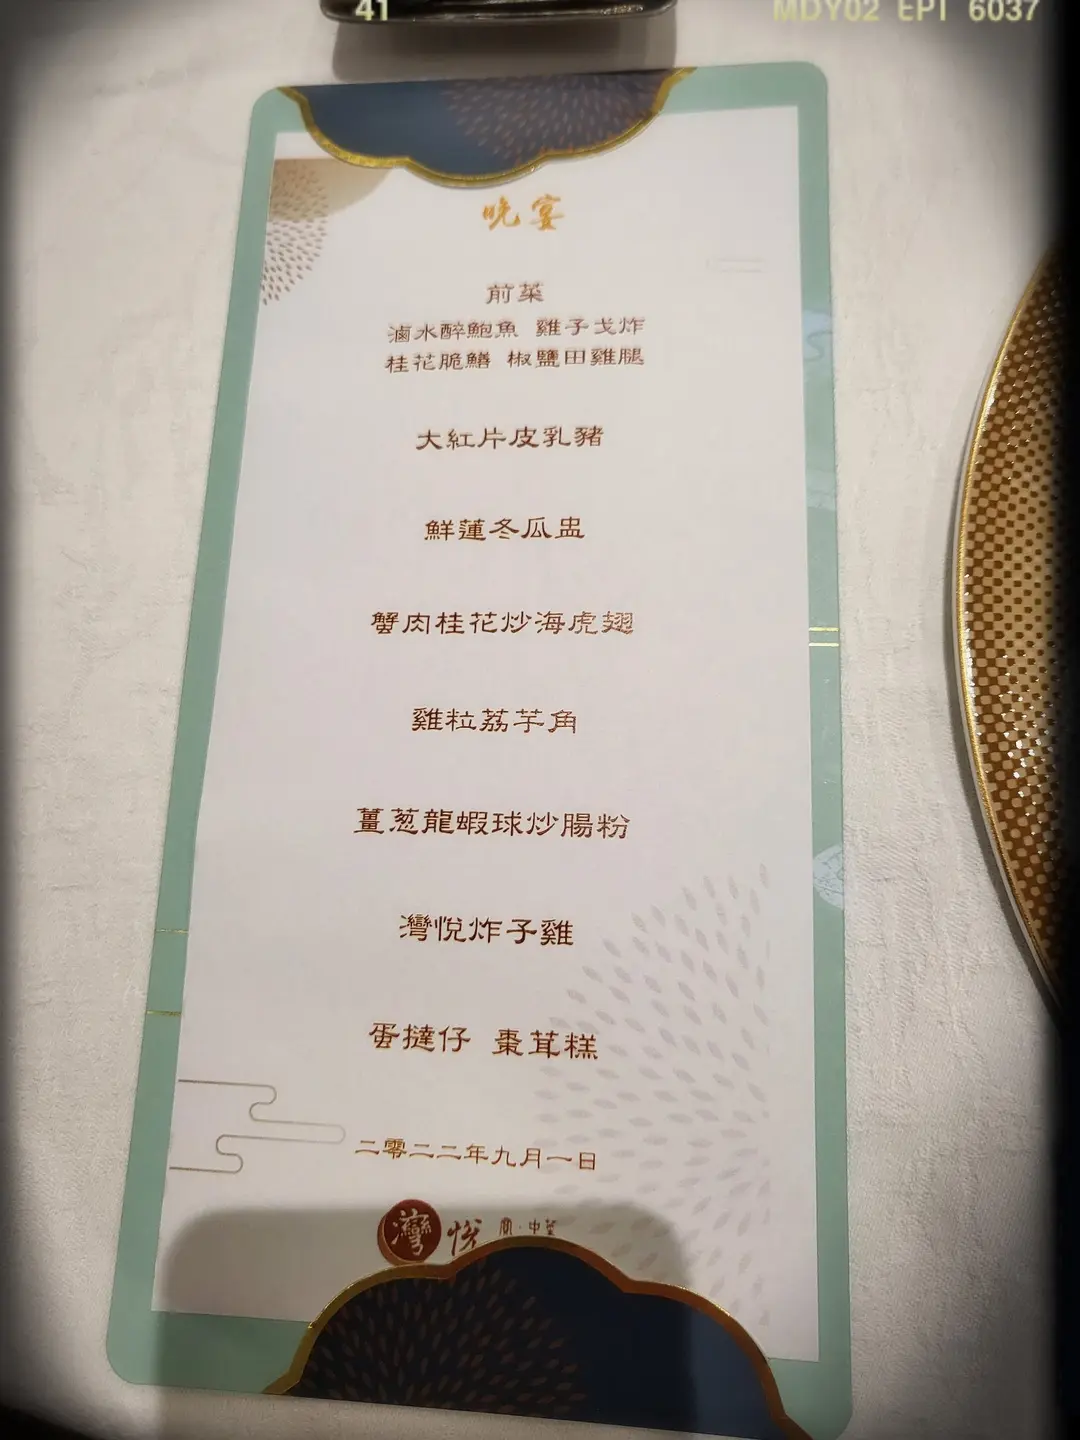 41
MDY02 EPI 6037
晚宴
前菜
滷水醉鮑魚 雞子戈炸
桂花脆鱔 椒鹽田雞腿
大紅片皮乳豬
鮮蓮冬瓜盅
蟹肉桂花炒海虎翅
雞粒荔芋角
薑葱龍蝦球炒腸粉
灣悅炸子雞
蛋撻仔 棗茸糕
二零二二年九月一日
灣悅